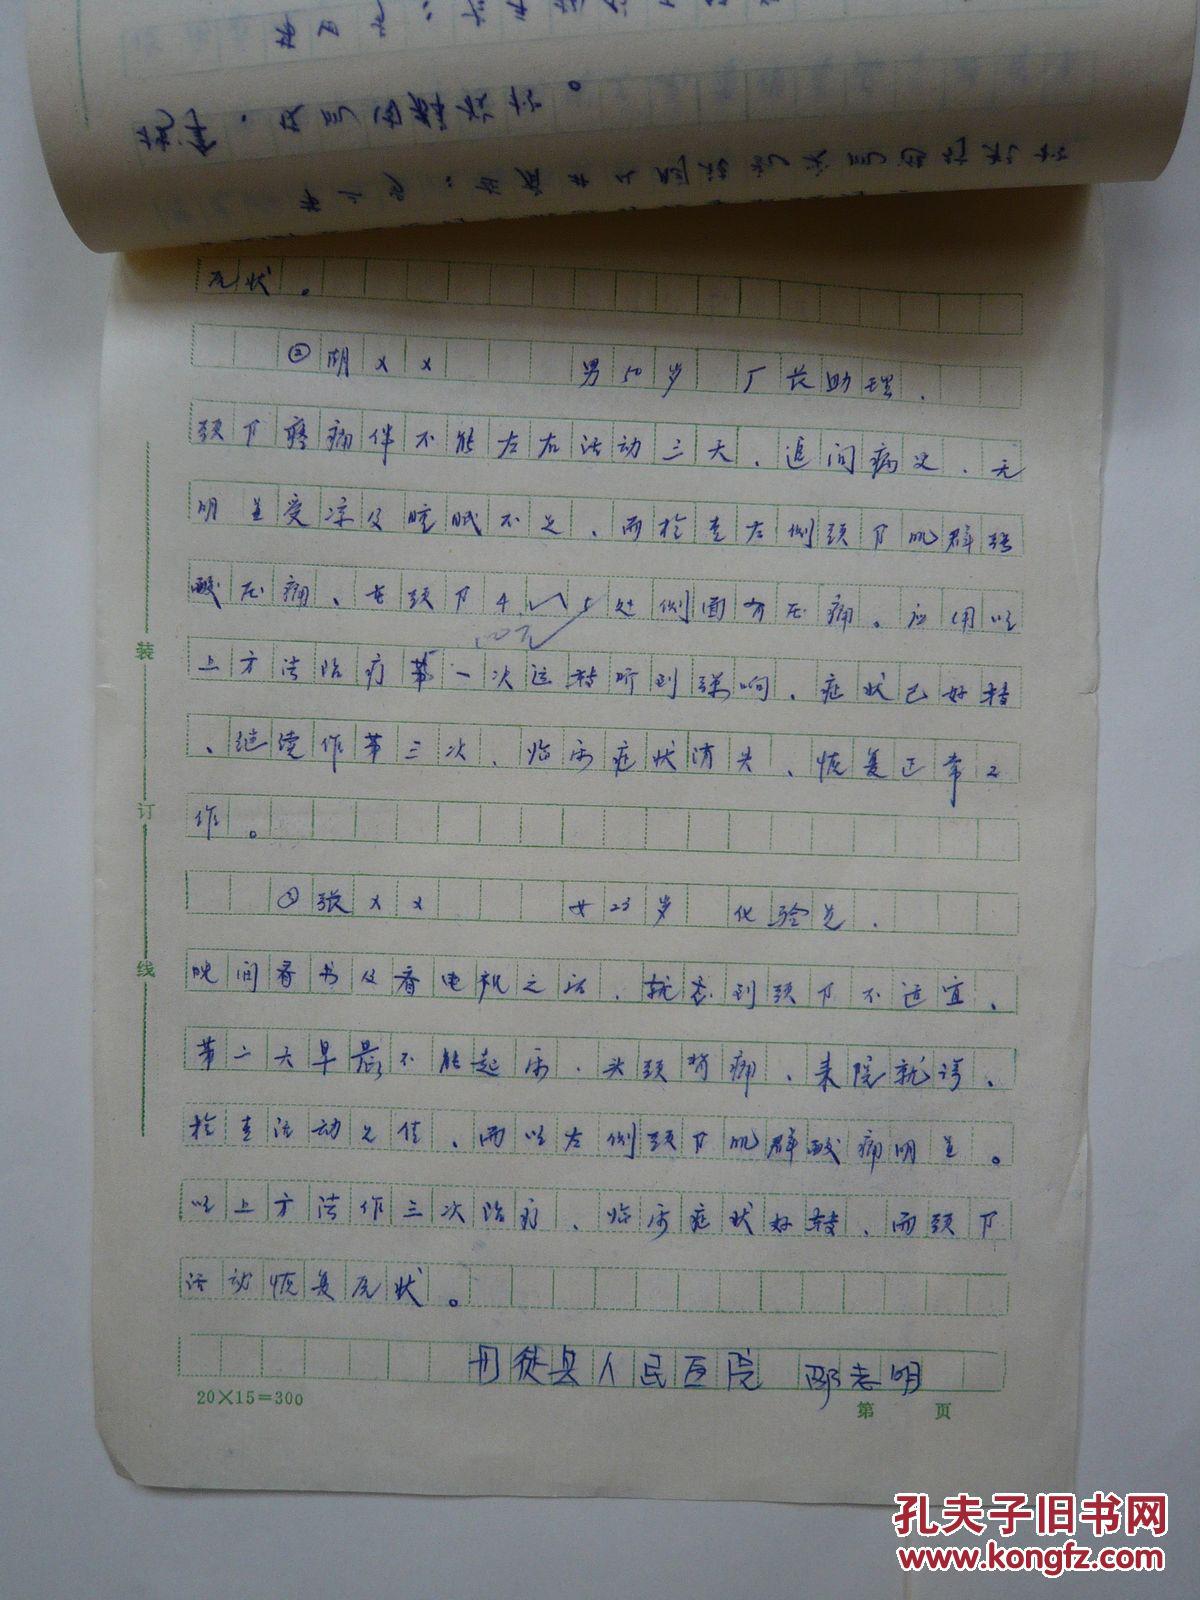 元状。
②胡××　男50岁　厂长助理.
颈部疼痛伴不能左右活动三天、追问病史、无
明显受凉及睡眠不足、而检查左侧颈部肌群强
酸压痛、在颈部4 5处侧面有压痛。应用以
上方法治疗第一次运转听到弹响、症状已好转
、继续作第三次、临床症状消失、恢复正常工
作。
③张××　女23岁　化验员.
晚间看书及看电视之后、就感到颈部不适宜、
第二天早晨不能起床、头颈背痛、来院就诊、
检查活动欠佳、而以左侧颈部肌群酸痛明显。
以上方法作三次治疗、临床症状好转、而颈部
活动恢复元状。
丹徒县人民医院　邵志明
20×15=300
第　页
装订线
孔夫子旧书网
www.kongfz.com